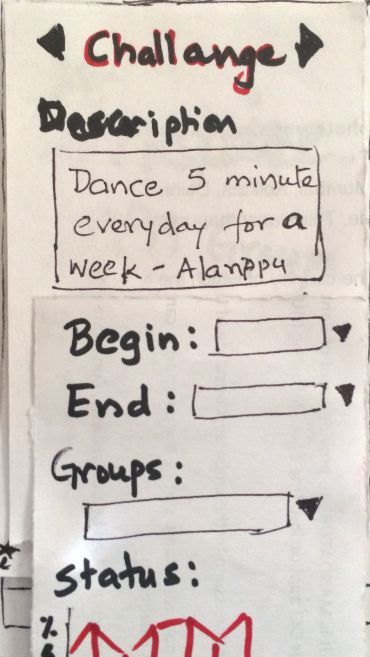 Challange
Description
Dance 5 minute
everyday for a
week - Alanppy
Begin:
End:
Groups:
Status:
%